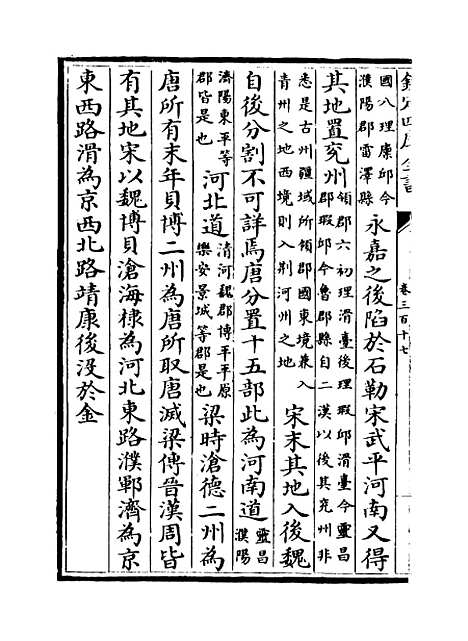 欽定四庫全書
卷三百十七
國八理廪邱今
濮陽郡雷澤縣
永嘉之後陷於石勒宋武平河南又得
其地置兖州
領郡六初理滑臺後理瑕邱滑臺今靈昌
郡瑕邱今魯郡縣自二漢以後其兖州非
悉是古州疆域所領郡國東境兼入
青州之地西境則入荆河州之地
宋末其地入後魏
自後分割不可詳焉唐分置十五部此為河南道
靈昌
濮陽
濟陽東平等
郡皆是也
河北道
清河魏郡博平平原
樂安景城等郡是也
梁時滄德二州為
唐所有末年貝博二州為唐所取唐滅梁傳晉漢周皆
有其地宋以魏博貝滄海棣為河北東路濮鄆濟為京
東西路滑為京西北路靖康後没於金